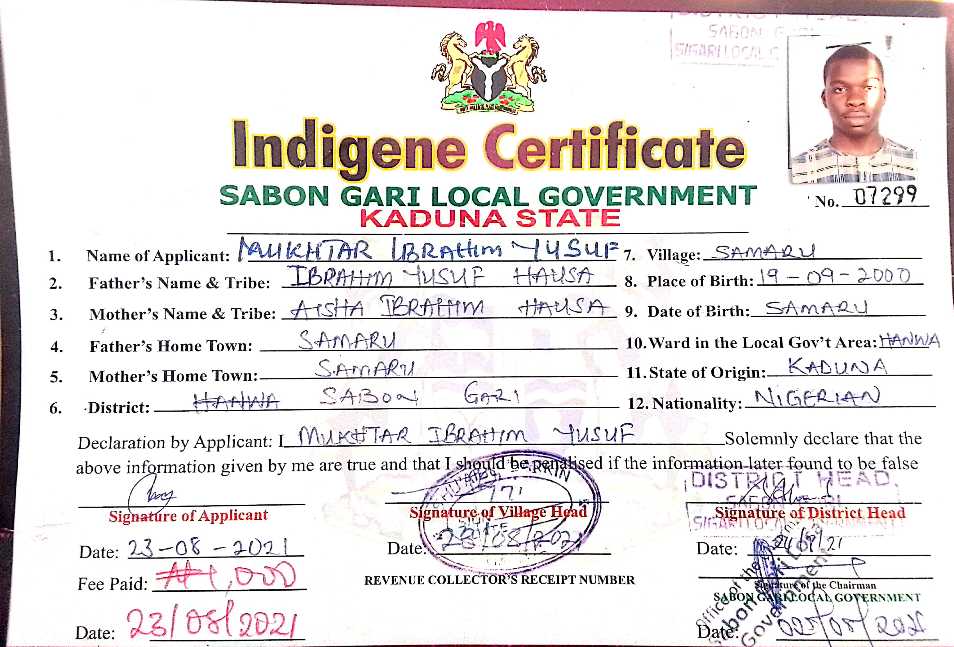 DISTRICT HEAD
SABON GARI
S/GARI LOCAL G
Indigene Certificate
SABON GARI LOCAL GOVERNMENT
KADUNA STATE
No. 07299
1. Name of Applicant: MUKHTAR IBRAHIM YUSUF 7. Village: SAMARU
2. Father's Name & Tribe: IBRAHIM YUSUF HAUSA 8. Place of Birth: 19-09-2000
3. Mother's Name & Tribe: AISHA IBRAHIM HAUSA 9. Date of Birth: SAMARU
4. Father's Home Town: SAMARU 10. Ward in the Local Gov't Area: HANWA
5. Mother's Home Town: SAMARU 11. State of Origin: KADUNA
6. District: HANWA SABON GARI 12. Nationality: NIGERIAN
Declaration by Applicant: I MUKHTAR IBRAHIM YUSUF Solemnly declare that the
above information given by me are true and that I should be penalised if the information later found to be false
DISTRICT HEAD.
Signature of Applicant Signature of Village Head Signature of District Head
S/GARI LOCAL
Date: 23-08-2021 Date: 23/08/2021 Date: 24/08/21
Fee Paid: ₦1,000 REVENUE COLLECTOR'S RECEIPT NUMBER
Signature of the Chairman
SABON GARI LOCAL GOVERNMENT
Office of the
Sabon Gari Local
Government
Date: 23/08/2021 Date: